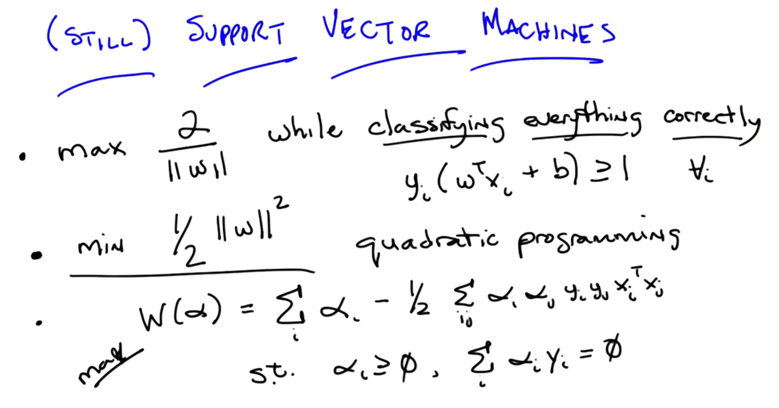 (STILL) SUPPORT VECTOR MACHINES
• max 2/||w|| while classifying everything correctly
yᵢ(wᵀxᵢ + b) ≥ 1 ∀ᵢ
• min 1/2 ||w||² quadratic programming
• max W(α) = Σᵢ αᵢ - 1/2 Σᵢⱼ αᵢ αⱼ yᵢ yⱼ xᵢᵀxⱼ
s.t. αᵢ ≥ ∅, Σᵢ αᵢ yᵢ = ∅